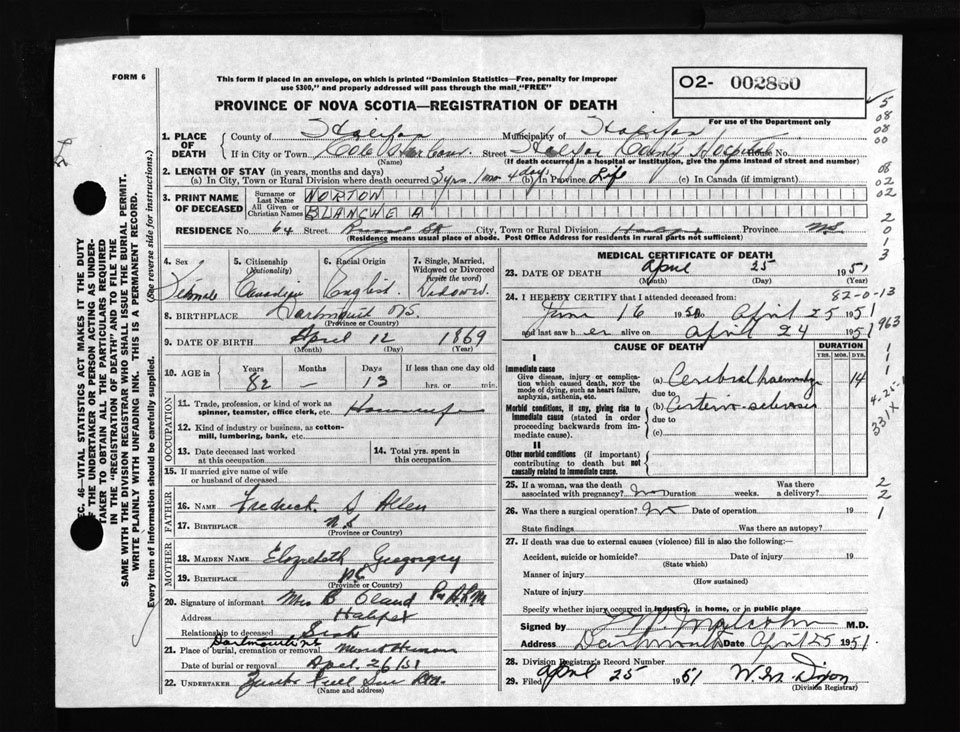 FORM 6
This form if placed in an envelope, on which is printed "Dominion Statistics—Free, penalty for improper
use $300," and properly addressed will pass through the mail "FREE"
PROVINCE OF NOVA SCOTIA—REGISTRATION OF DEATH
O2- 002860
For use of the Department only
1. PLACE OF DEATH
County of Halifax Municipality of Halifax
If in City or Town Cole Harbour Street Halifax County Hospital House No.
(Name) (If death occurred in a hospital or institution, give its name instead of street and number)
2. LENGTH OF STAY (in years, months and days)
(a) In City, Town or Rural Division where death occurred 3 yrs. 1 mo 4 days (b) In Province Life (c) In Canada (if immigrant)
3. PRINT NAME OF DECEASED
Surname or Last Name NORTON
All Given or Christian Names BLANCHE A
RESIDENCE No. 64 Street Russel St City, Town or Rural Division Halifax Province N.S.
(Residence means usual place of abode. Post Office Address for residents in rural parts not sufficient)
4. Sex Female
5. Citizenship (Nationality) Canadian
6. Racial Origin English
7. Single, Married, Widowed or Divorced (write the word) Widowed
8. BIRTHPLACE Dartmouth N.S.
(Province or Country)
9. DATE OF BIRTH April 12 1869
(Month) (Day) (Year)
10. AGE in Years Months Days If less than one day old
82 — 13 hrs. or min.
OCCUPATION
11. Trade, profession or kind of work as spinner, teamster, office clerk, etc. Housewife
12. Kind of industry or business, as cotton-mill, lumbering, bank, etc.
13. Date deceased last worked at this occupation
14. Total yrs. spent in this occupation
15. If married give name of wife or husband of deceased
FATHER
16. NAME Frederick S Allen
17. BIRTHPLACE N.S.
(Province or Country)
MOTHER
18. MAIDEN NAME Elizabeth
19. BIRTHPLACE
(Province or Country)
20. Signature of informant Mrs B Oland Per
Address Halifax
Relationship to deceased Sister
21. Place of burial, cremation or removal Dartmouth Mount Hermon
Date of burial or removal Apr. 26/51
22. UNDERTAKER
(Name and address)
MEDICAL CERTIFICATE OF DEATH
23. DATE OF DEATH April 25 1951
(Month) (Day)
24. I HEREBY CERTIFY that I attended deceased from: 82-0-13
June 16 1950 to April 25 1951
and last saw her alive on April 24 1951
CAUSE OF DEATH DURATION
YRS. MOS. DYS.
I
Immediate cause
Give disease, injury or complication which caused death, NOT the mode of dying, such as heart failure, asphyxia, asthenia, etc.
(a) Cerebral haemorrhage 14
due to
Morbid conditions, if any, giving rise to immediate cause (stated in order proceeding backwards from immediate cause).
(b) Arterio-sclerosis
due to
(c)
II
Other morbid conditions (if important) contributing to death but not causally related to immediate cause.
25. If a woman, was the death associated with pregnancy? No Duration weeks. Was there a delivery?
26. Was there a surgical operation? No Date of operation 19
State findings Was there an autopsy?
27. If death was due to external causes (violence) fill in also the following:—
Accident, suicide or homicide? Date of injury 19
(State which)
Manner of injury
(How sustained)
Nature of injury
Specify whether injury occurred in industry, in home, or in public place
Signed by Malcolm M.D.
Address Dartmouth Date April 25 1951.
28. Division Registrar's Record Number
29. Filed April 25 1951 W. M. Dixon
(Division Registrar)
5
08
08
00
08
02
02
2
0
1
3
963
1
1
1
4-25-
331X
2
2
1
SEC. 46—VITAL STATISTICS ACT MAKES IT THE DUTY
OF THE UNDERTAKER OR PERSON ACTING AS UNDER-
TAKER TO OBTAIN ALL THE PARTICULARS REQUIRED
IN THE "REGISTRATION OF DEATH" AND TO FILE THE
SAME WITH THE DIVISION REGISTRAR WHO SHALL ISSUE THE BURIAL PERMIT.
WRITE PLAINLY WITH UNFADING INK. THIS IS A PERMANENT RECORD.
Every item of information should be carefully supplied. (See reverse side for instructions.)